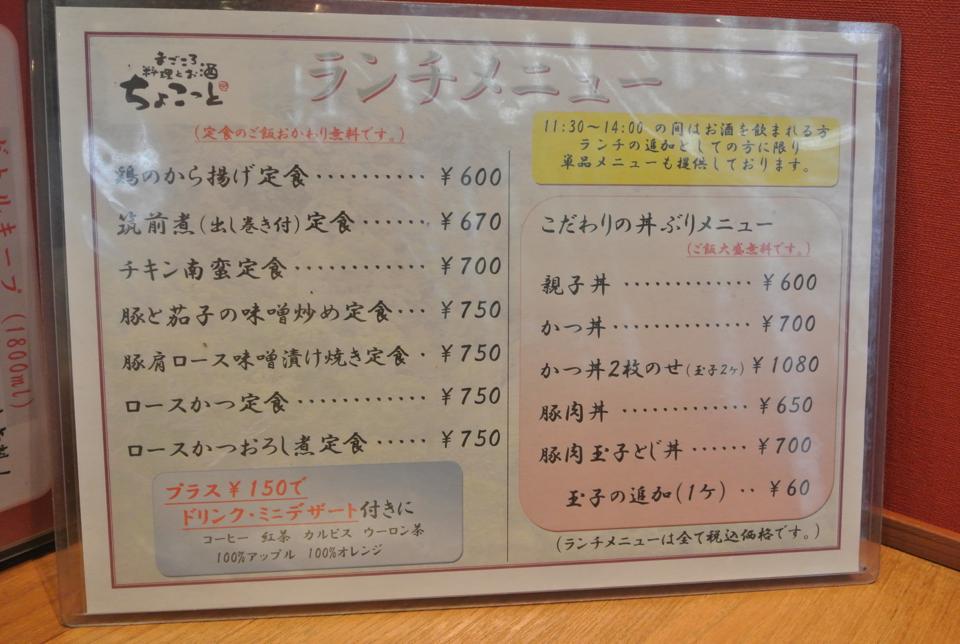 まごころ
料理とお酒
ちょこっと
ランチメニュー
(定食のご飯おかわり無料です。)
鶏のから揚げ定食・・・・・・・・・・ ¥600
筑前煮(出し巻き付)定食・・・・・・ ¥670
チキン南蛮定食・・・・・・・・・・・・ ¥700
豚と茄子の味噌炒め定食・・・・ ¥750
豚肩ロース味噌漬け焼き定食・ ¥750
ロースかつ定食・・・・・・・・・・・・ ¥750
ロースかつおろし煮定食・・・・・ ¥750
プラス¥150で
ドリンク・ミニデザート付きに
コーヒー 紅茶 カルピス ウーロン茶
100%アップル 100%オレンジ
11:30~14:00 の間はお酒を飲まれる方
ランチの追加としての方に限り
単品メニューも提供しております。
こだわりの丼ぶりメニュー
(ご飯大盛無料です。)
親子丼 ・・・・・・・・・・・・・ ¥600
かつ丼・・・・・・・・・・・・・・ ¥700
かつ丼2枚のせ(玉子2ケ) ¥1080
豚肉丼 ・・・・・・・・・・・・・ ¥650
豚肉玉子とじ丼・・・・・・ ¥700
玉子の追加(1ケ) ・・ ¥60
(ランチメニューは全て税込価格です。)
ボトルキープ(1800ml)